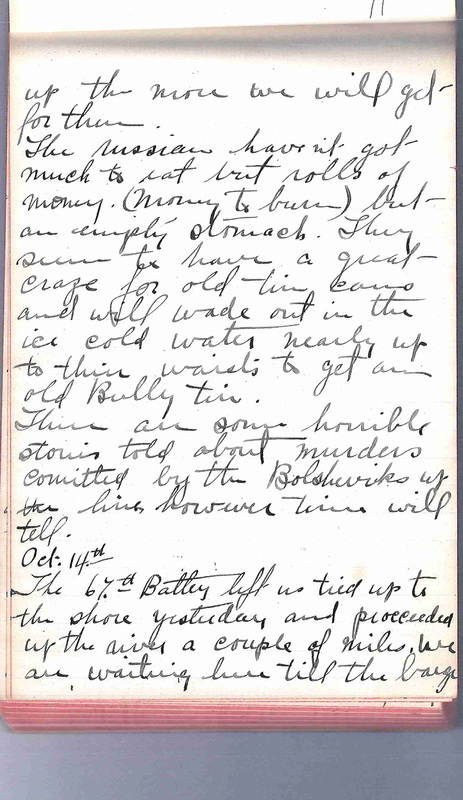 up the more we will get
for them.
The russian havent got
much to eat but rolls of
money. (Money to burn) but
an empty stomach. They
seem to have a great
craze for old tin cans
and will wade out in the
ice cold water nearly up
to their waists to get an
old Bully tin.
There are some horrible
stories told about murders
comitted by the Bolsheviks up
the line, however time will
tell.
Oct. 14th
The 67th Battey left us tied up to
the shore yesterday and proceeded
up the river a couple of miles, we
are waiting here till the barge